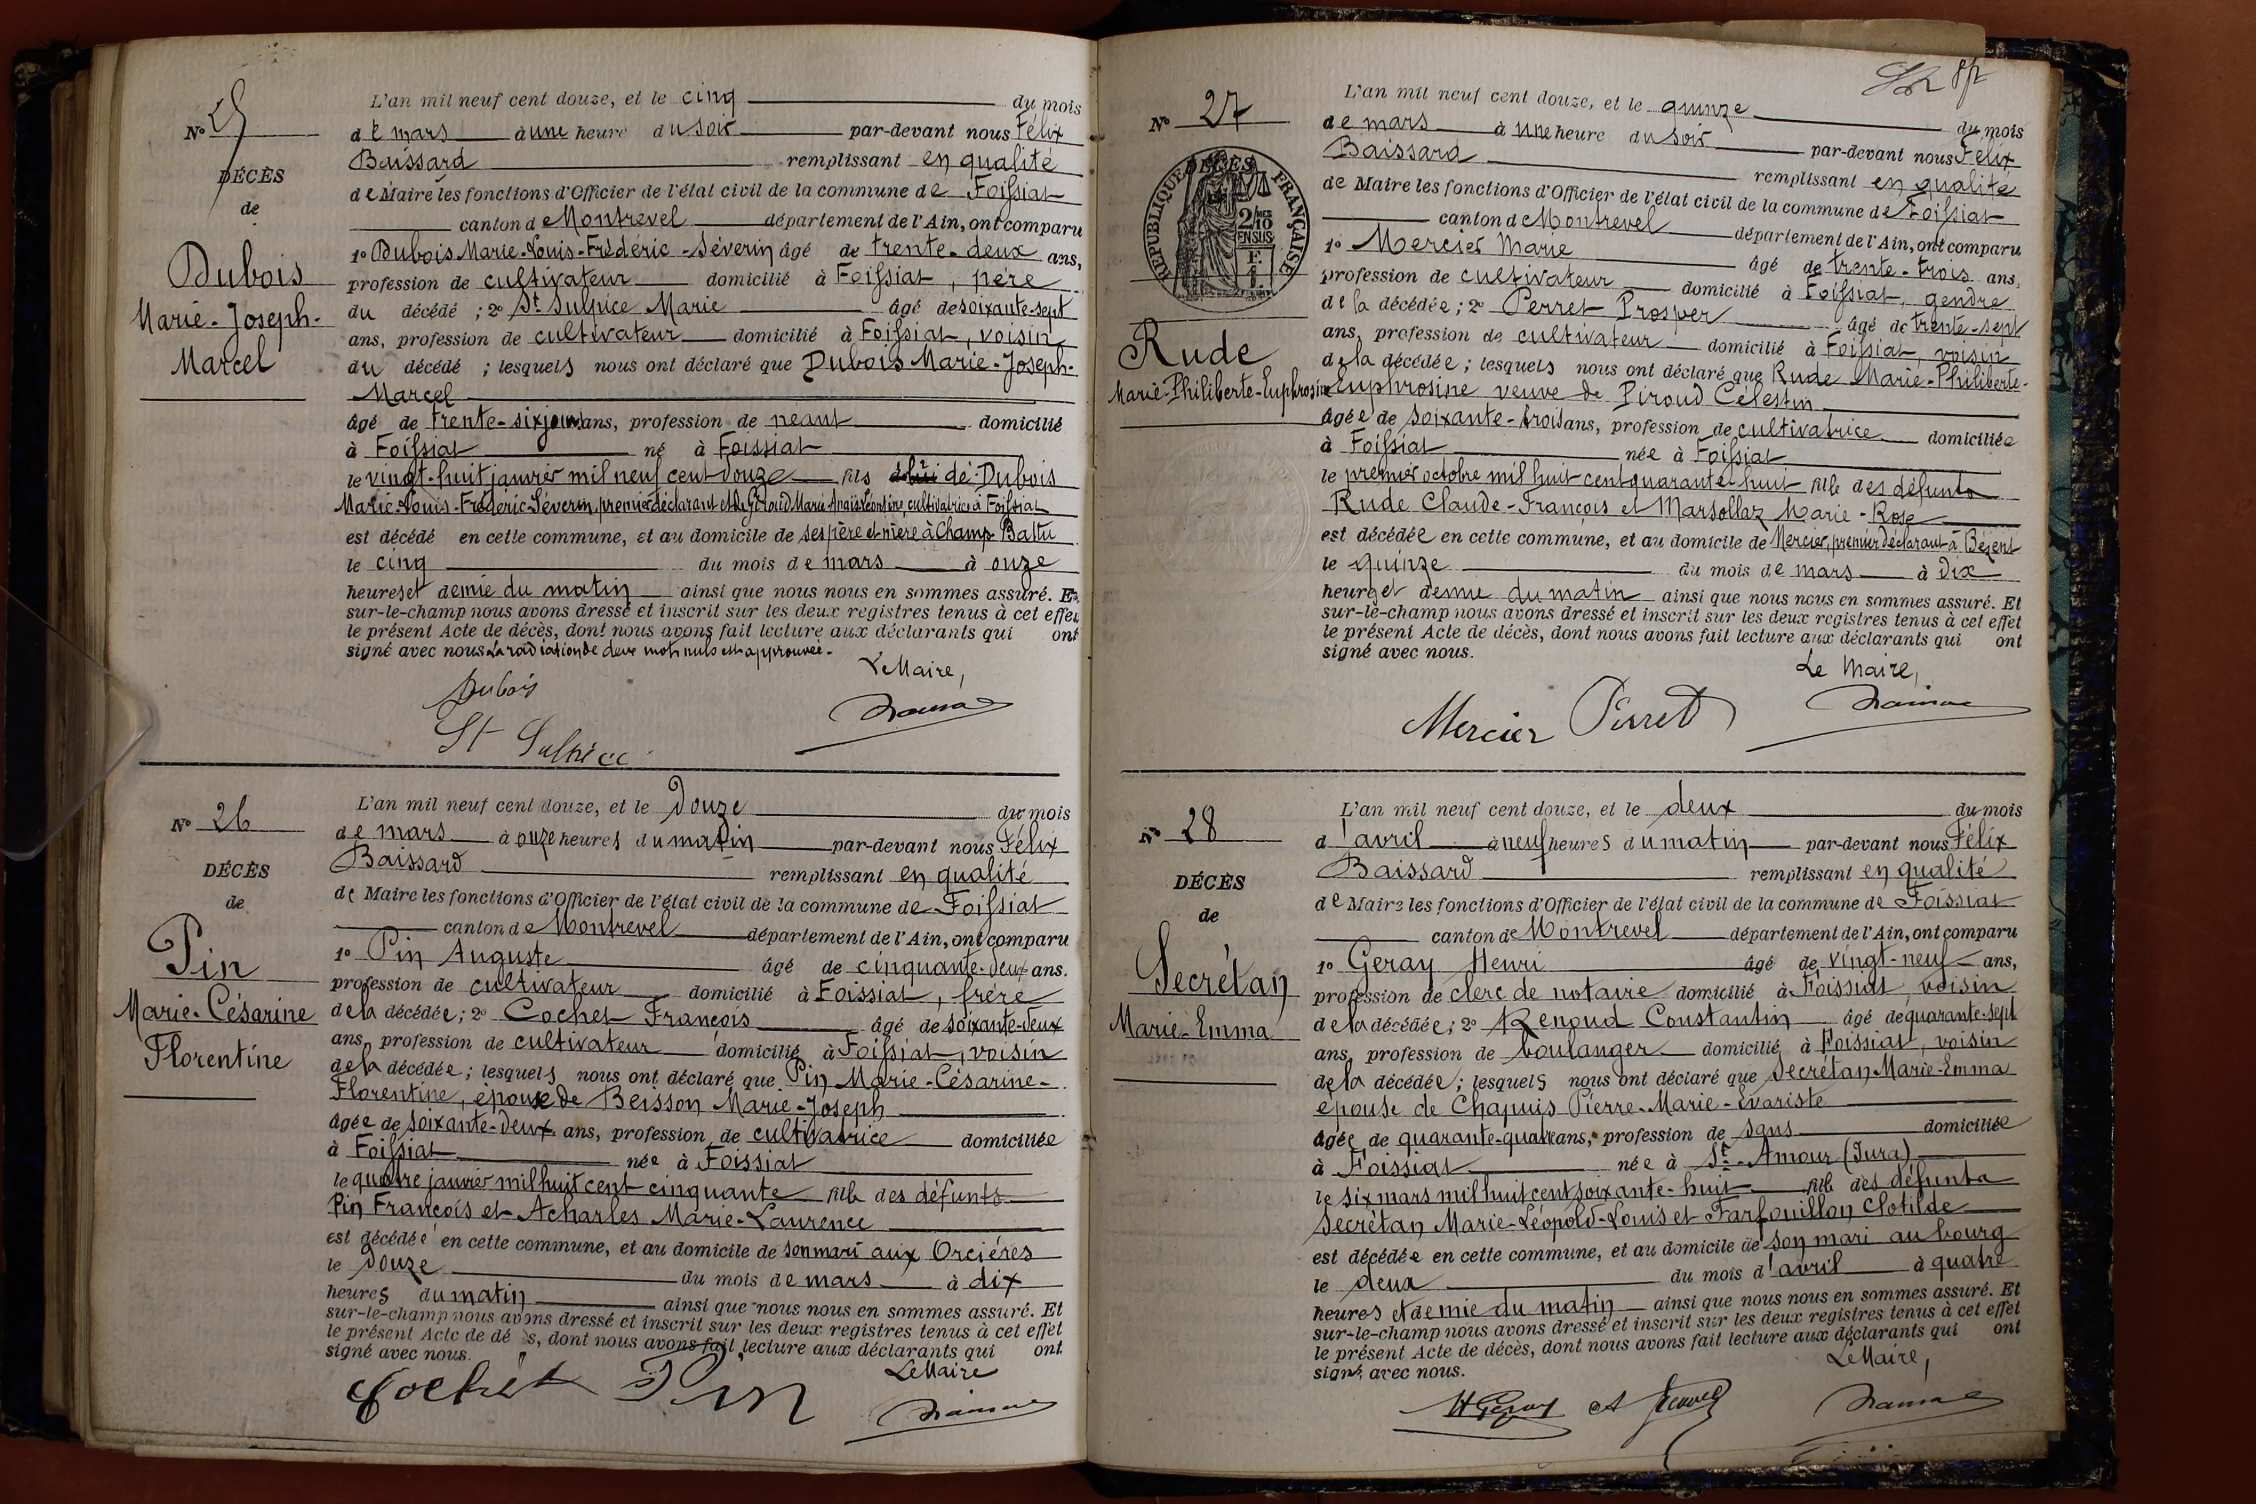 L'an mil neuf cent douze, et le cinq du mois
N° 25
de mars à une heure du soir par-devant nous Félix
Baissard remplissant en qualité
DÉCÈS
de Maire les fonctions d'Officier de l'état civil de la commune de Foissiat
de
canton de Montrevel département de l'Ain, ont comparu
1° Dubois Marie-Louis-Frédéric-Séverin âgé de trente-deux ans,
Dubois
profession de cultivateur domicilié à Foissiat, père
Marie-Joseph-
du décédé ; 2° St Sulpice Marie âgé de soixante-sept
ans, profession de cultivateur domicilié à Foissiat, voisin
Marcel
du décédé ; lesquels nous ont déclaré que Dubois Marie-Joseph-
Marcel
âgé de trente-six jours ans, profession de néant domicilié
à Foissiat né à Foissiat
le vingt-huit janvier mil neuf cent douze fils de Dubois
Marie-Louis-Frédéric-Séverin, premier déclarant et de Géroud Marie-Anaïs-Léontine, cultivatrice à Foissiat
est décédé en cette commune, et au domicile de ses père et mère à Champ Battu
le cinq du mois de mars à onze
heures et demie du matin ainsi que nous nous en sommes assuré. Et
sur-le-champ nous avons dressé et inscrit sur les deux registres tenus à cet effet
le présent Acte de décès, dont nous avons fait lecture aux déclarants qui ont
signé avec nous. La radiation de deux mots nuls est approuvée.
Le Maire,
Dubois
St Sulpice
L'an mil neuf cent douze, et le douze du mois
N° 26
de mars à onze heures du matin par-devant nous Félix
Baissard remplissant en qualité
DÉCÈS
de Maire les fonctions d'Officier de l'état civil de la commune de Foissiat
de
canton de Montrevel département de l'Ain, ont comparu
1° Pin Auguste âgé de cinquante-deux ans.
Pin
profession de cultivateur domicilié à Foissiat, frère
Marie-Césarine
de la décédée ; 2° Cochet François âgé de soixante-deux
ans, profession de cultivateur domicilié à Foissiat, voisin
Florentine
de la décédée ; lesquels nous ont déclaré que Pin Marie-Césarine-
Florentine, épouse de Berson Marie-Joseph
âgée de soixante-deux ans, profession de cultivatrice domiciliée
à Foissiat née à Foissiat
le quatre janvier mil huit cent cinquante fille des défunts
Pin François et Acharles Marie-Laurence
est décédée en cette commune, et au domicile de son mari aux Orcières
le douze du mois de mars à dix
heures du matin ainsi que nous nous en sommes assuré. Et
sur-le-champ nous avons dressé et inscrit sur les deux registres tenus à cet effet
le présent Acte de dé s, dont nous avons fait lecture aux déclarants qui ont
signé avec nous.
Le Maire
Cochet Pin
L'an mil neuf cent douze, et le quinze du mois
N° 27
de mars à une heure du soir par-devant nous Félix
Baissard remplissant en qualité
DÉCÈS
RÉPUBLIQUE FRANÇAISE
2/10 EN SUS
de Maire les fonctions d'Officier de l'état civil de la commune de Foissiat
canton de Montrevel département de l'Ain, ont comparu
1° Mercier Marie âgé de trente-trois ans,
profession de cultivateur domicilié à Foissiat, gendre
de la décédée ; 2° Perret Prosper âgé de trente-sept
ans, profession de cultivateur domicilié à Foissiat, voisin
Rude
de la décédée ; lesquels nous ont déclaré que Rude Marie-Philiberte-
Marie-Philiberte-Euphrosine
Euphrosine veuve de Piroud Célestin
âgée de soixante-trois ans, profession de cultivatrice domiciliée
à Foissiat née à Foissiat
le premier octobre mil huit cent quarante-huit fille des défunts
Rude Claude-François et Marsollaz Marie-Rose
est décédée en cette commune, et au domicile de Mercier, premier déclarant à Béjent
le quinze du mois de mars à dix
heures et demie du matin ainsi que nous nous en sommes assuré. Et
sur-le-champ nous avons dressé et inscrit sur les deux registres tenus à cet effet
le présent Acte de décès, dont nous avons fait lecture aux déclarants qui ont
signé avec nous.
Le Maire,
Mercier Perret
L'an mil neuf cent douze, et le deux du mois
N° 28
d'avril à neuf heures du matin par-devant nous Félix
Baissard remplissant en qualité
DÉCÈS
de Maire les fonctions d'Officier de l'état civil de la commune de Foissiat
de
canton de Montrevel département de l'Ain, ont comparu
1° Geray Henri âgé de vingt-neuf ans,
Secrétan
profession de clerc de notaire domicilié à Foissiat, voisin
Marie-Emma
de la décédée ; 2° Renoud Constantin âgé de quarante-sept
ans, profession de boulanger domicilié à Foissiat, voisin
de la décédée ; lesquels nous ont déclaré que Secrétan Marie-Emma
épouse de Chapuis Pierre-Marie-Evariste
âgée de quarante-quatre ans, profession de sans domiciliée
à Foissiat née à St-Amour (Jura)
le six mars mil huit cent soixante-huit fille des défunts
Secrétan Marie-Léopold-Louis et Farfouillon Clotilde
est décédée en cette commune, et au domicile de son mari au bourg
le deux du mois d'avril à quatre
heures et demie du matin ainsi que nous nous en sommes assuré. Et
sur-le-champ nous avons dressé et inscrit sur les deux registres tenus à cet effet
le présent Acte de décès, dont nous avons fait lecture aux déclarants qui ont
signé avec nous.
Le Maire,
H Geray